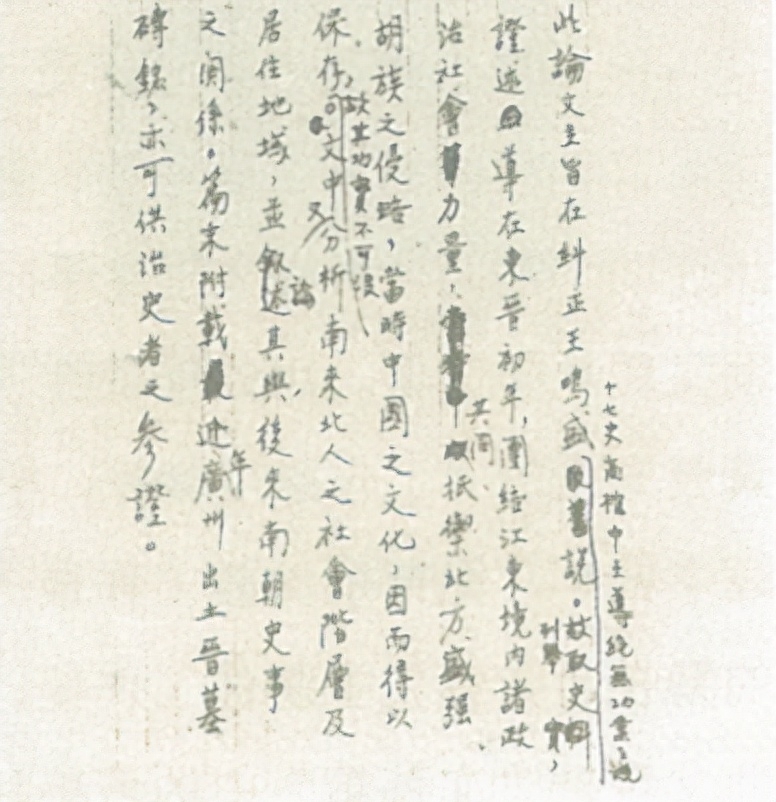 此論文主旨在糾正王鳴盛
十七史商榷中王導絕無功業之說
說。故取史料
列舉 實，
證述 導在東晉初年，團結江東境內諸政
治社會 力量，
共同
抵禦北方盛强
胡族之侵略，當時中國之文化，因而得以
保存，
故其功實不可沒
文中又分析南來北人之社會階層及
居住地域，並叙述
論
其與後來南朝史事
之關係。篇末附載 近
年
廣州出土晉墓
磚銘，亦可供治史者之參證。